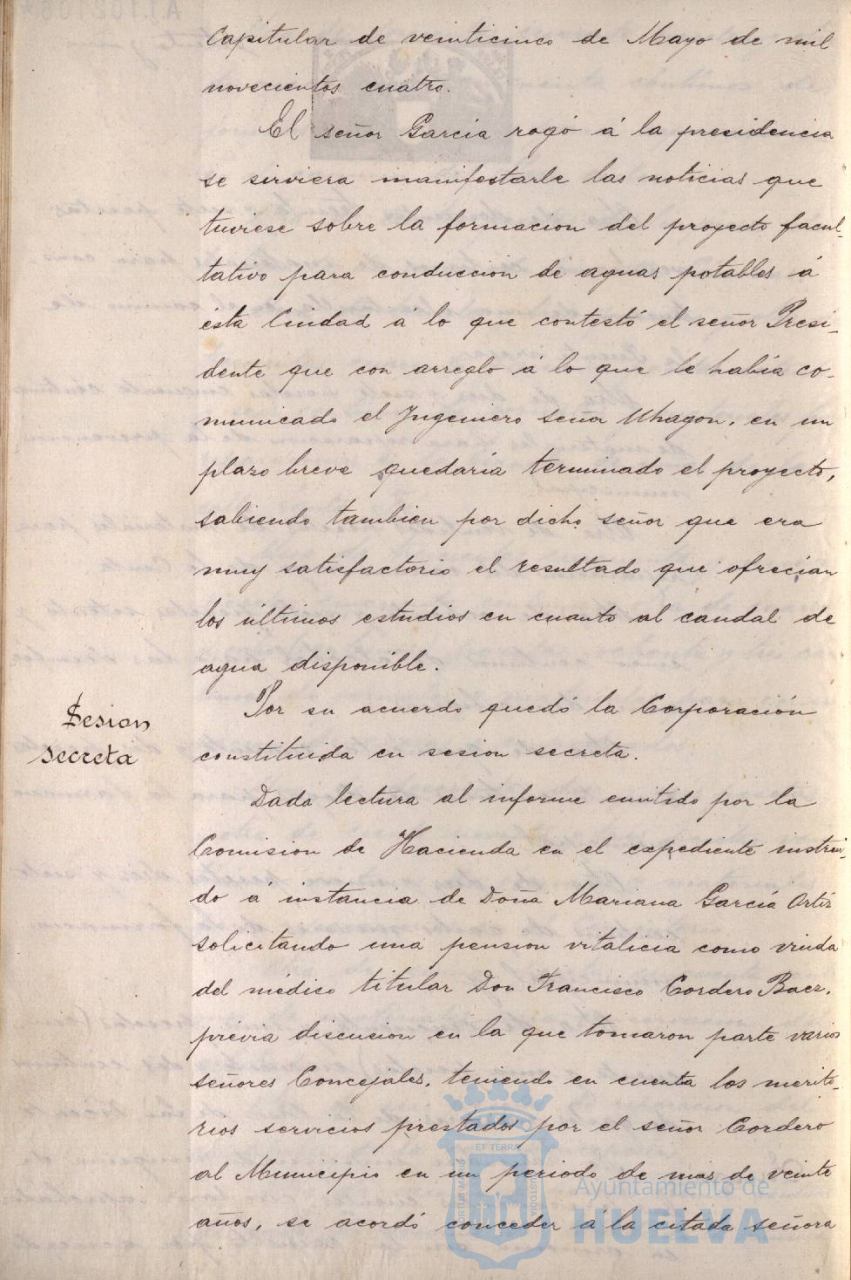 Capitular de veinticinco de Mayo de mil
novecientos cuatro.
El señor García rogó á la presidencia
se sirviera manifestarle las noticias que
tuviese sobre la formacion del proyecto facul-
tativo para conduccion de aguas potables á
ésta Ciudad á lo que contestó el señor Presi-
dente que con arreglo á lo que le había co-
municado el Ingeniero señor Uhagon, en un
plazo breve quedaría terminado el proyecto,
sabiendo tambien por dicho señor que era
muy satisfactorio el resultado que ofrecian
los últimos estudios en cuanto al caudal de
agua disponible.
Sesion
secreta
Por su acuerdo quedó la Corporación
constituida en sesion secreta.
Dada lectura al informe emitido por la
Comision de Hacienda en el expediente instrui-
do á instancia de Doña Mariana García Ortíz
solicitando una pension vitalicia como viuda
del médico titular Don Francisco Cordero Baez,
prévia discusion en la que tomaron parte varios
señores Concejales, teniendo en cuenta los merito-
rios servicios prestados por el señor Cordero
al Municipio en un periodo de mas de veinte
años, se acordó conceder á la citada señora
Ayuntamiento de
HUELVA